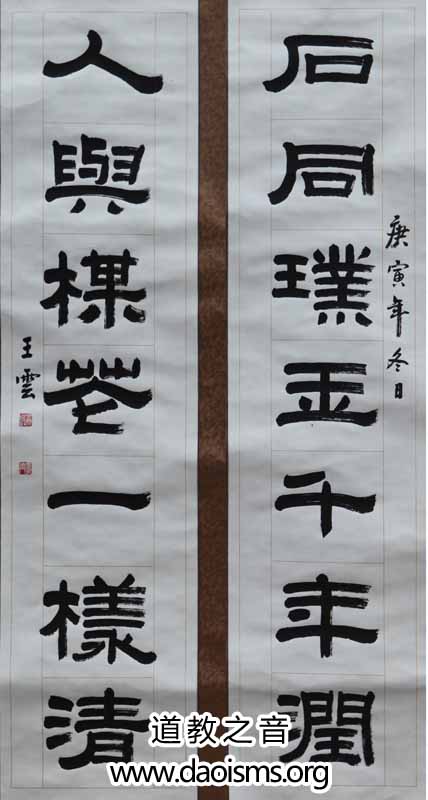 石同璞玉千年潤
庚寅年冬日
人與楳花一樣清
王雲
道教之音
www.daoisms.org